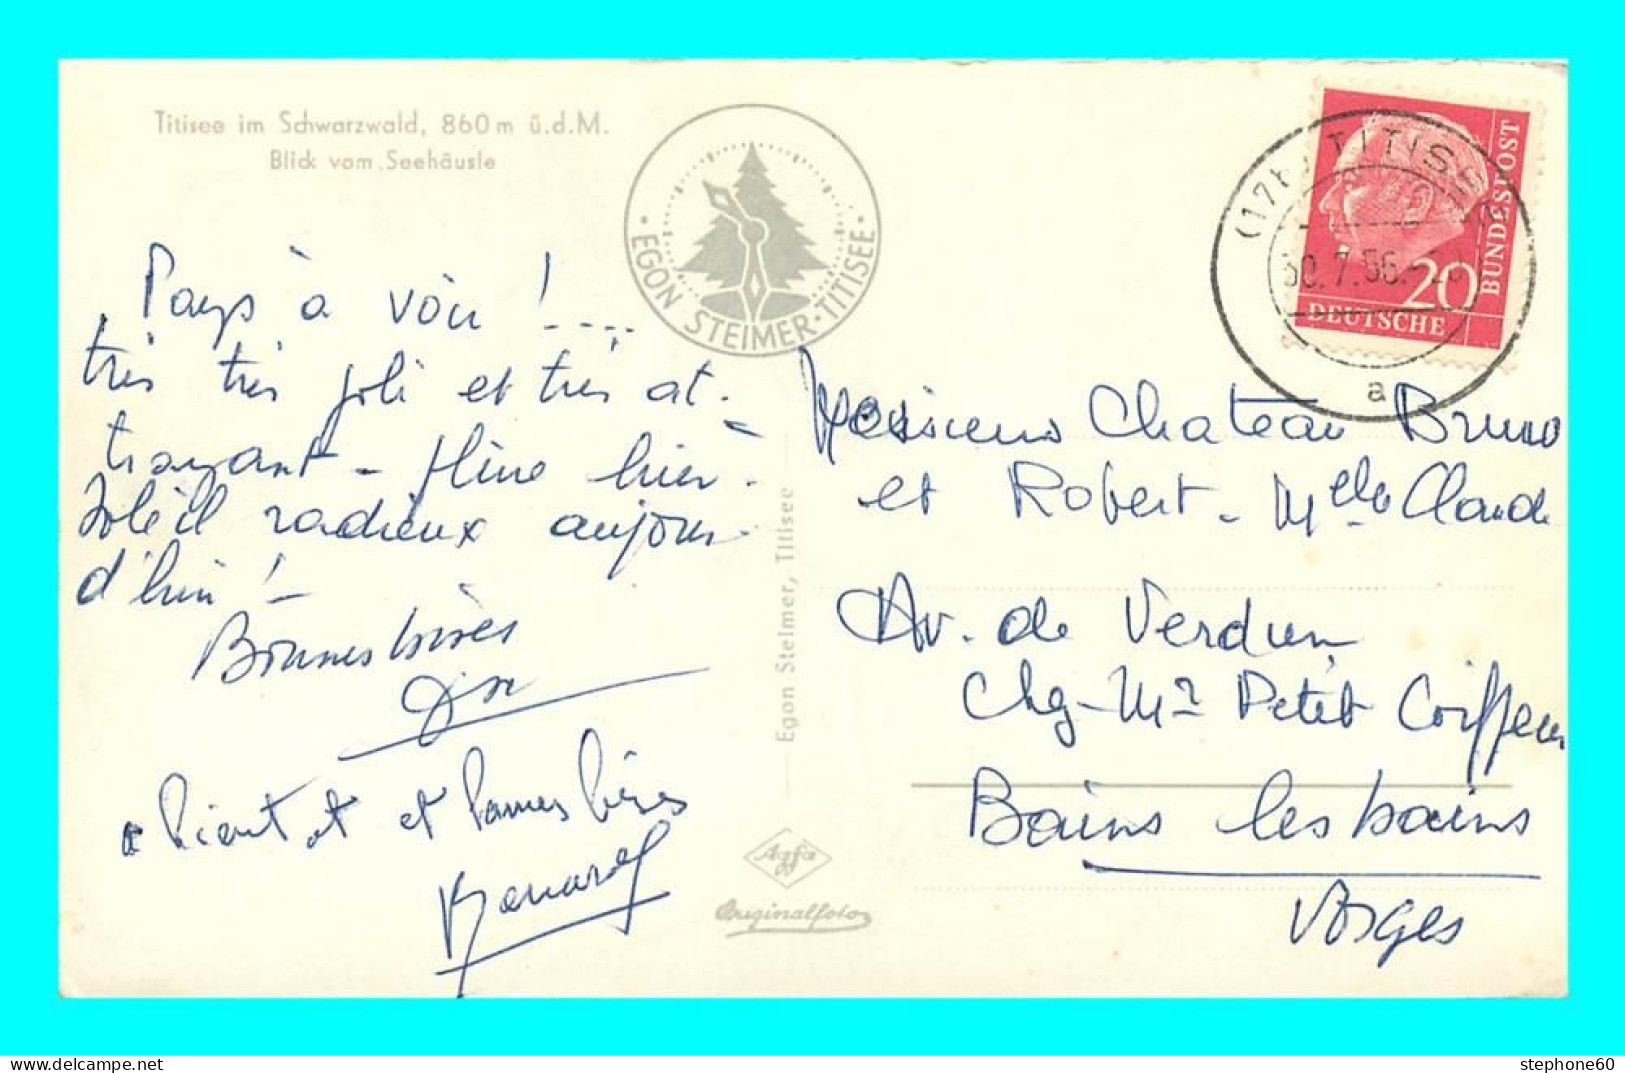 Titisee im Schwarzwald, 860 m ü.d.M.
Blick vom Seehäusle
• EGON STEIMER • TITISEE •
TITISEE
30.7.56.
a
DEUTSCHE
BUNDESPOST
20
Pays à voir ! ....
très très joli et très at-
trayant - pluie hier -
Soleil radieux aujour-
d'hui ! -
Bonnes bises
a bientot et bonnes bises
Bernard
Egon Steimer, Titisee
Agfa
Originalfoto
Messieurs Chateau Bruno
et Robert - Mlle Claude
Av. de Verdun
Chez Mr Petit Coiffeur
Bains les bains
Vosges
stephone60